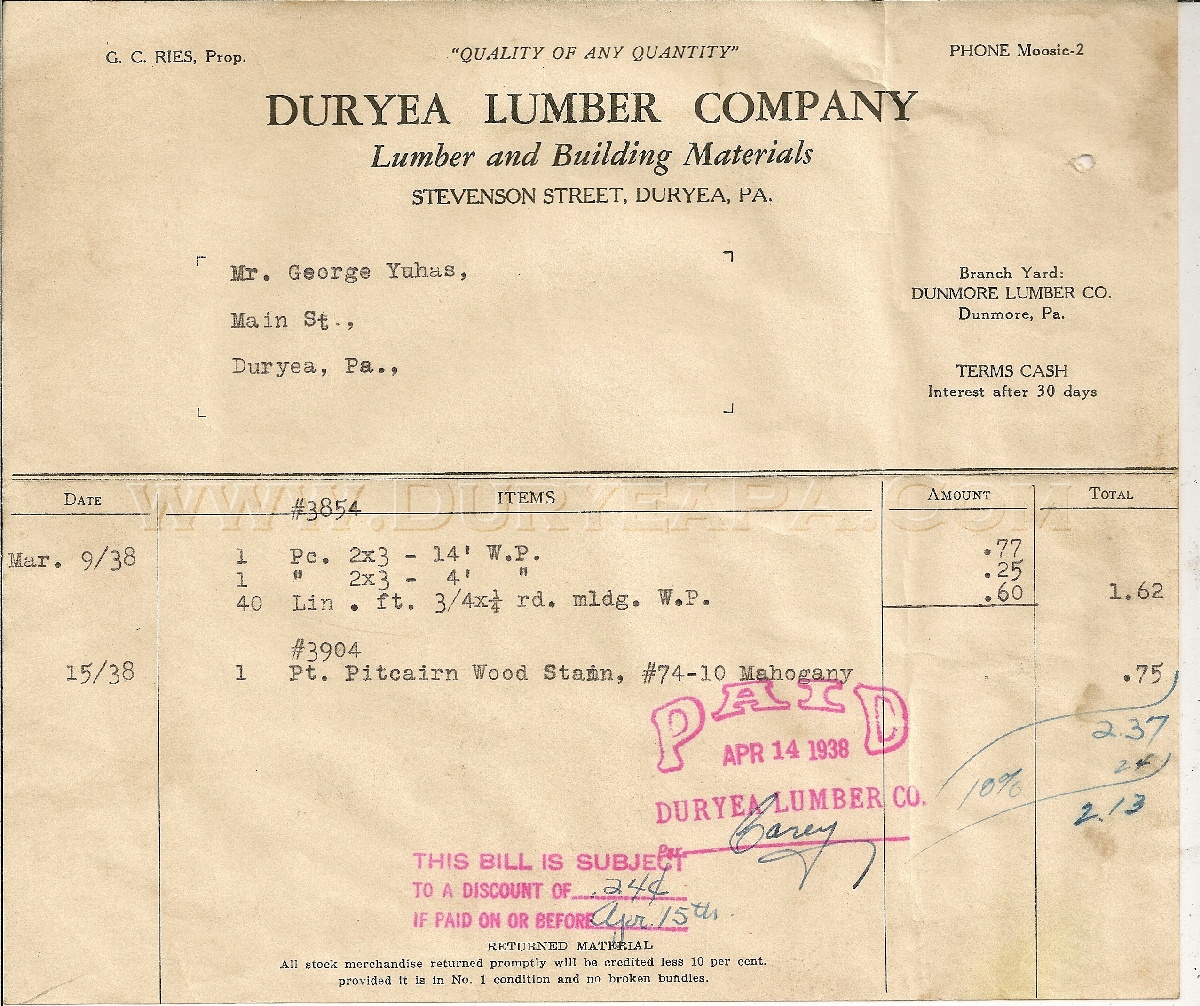 G. C. RIES, Prop.
"QUALITY OF ANY QUANTITY"
PHONE Moosic-2
DURYEA LUMBER COMPANY
Lumber and Building Materials
STEVENSON STREET, DURYEA, PA.
Mr. George Yuhas,
Main St.,
Duryea, Pa.,
Branch Yard:
DUNMORE LUMBER CO.
Dunmore, Pa.
TERMS CASH
Interest after 30 days
DATE ITEMS AMOUNT TOTAL
WWW.DURYEAPA.COM
#3854
Mar. 9/38 1 Pc. 2x3 - 14' W.P. .77
1 " 2x3 - 4' " .25
40 Lin . ft. 3/4x¼ rd. mldg. W.P. .60 1.62
#3904
15/38 1 Pt. Pitcairn Wood Stain, #74-10 Mahogany .75
PAID
APR 14 1938
DURYEA LUMBER CO.
Per Carey
2.37
10% 24
2.13
THIS BILL IS SUBJECT
TO A DISCOUNT OF .24¢
IF PAID ON OR BEFORE Apr. 15th.
RETURNED MATERIAL
All stock merchandise returned promptly will be credited less 10 per cent.
provided it is in No. 1 condition and no broken bundles.